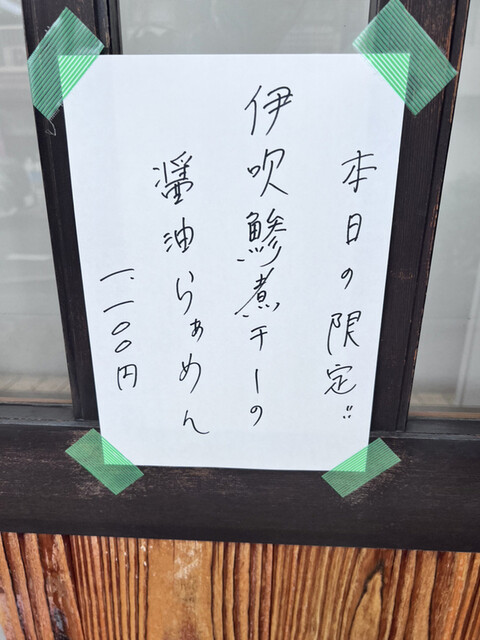 本日の限定‼
伊吹鯵煮干しの
醤油らぁめん
一、一〇〇円